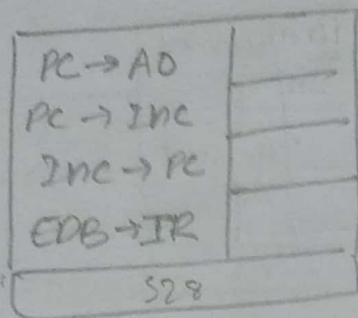 PC → AO
PC → INC
INC → PC
EDB → IR
528